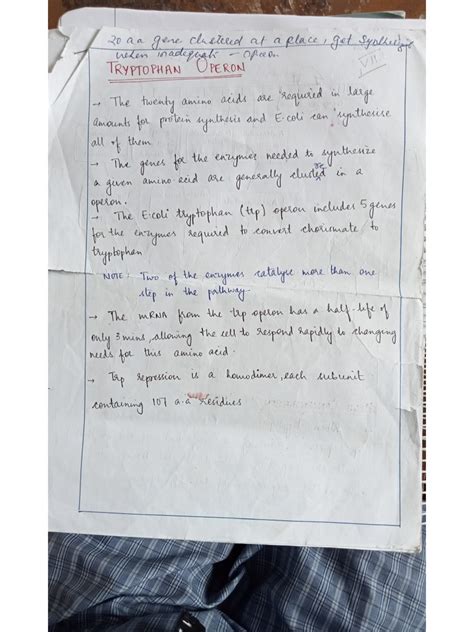 20 aa gene clustered at a place, get synthesize
when inadequate - operon
VIII
TRYPTOPHAN OPERON
→ The twenty amino acids are required in large
amounts for protein synthesis and E.coli can synthesise
all of them
→ The genes for the enzymes needed to synthesize
a given amino acid are generally clusted in a
operon.
→ The E.coli tryptophan (trp) operon includes 5 genes
for the enzymes required to convert chorismate to
tryptophan
NOTE: Two of the enzymes catalyse more than one
step in the pathway.
→ The mRNA from the trp operon has a half-life of
only 3 mins, allowing the cell to respond rapidly to changing
needs for this amino acid.
→ Trp repression is a homodimer, each subunit
containing 107 a.a residues